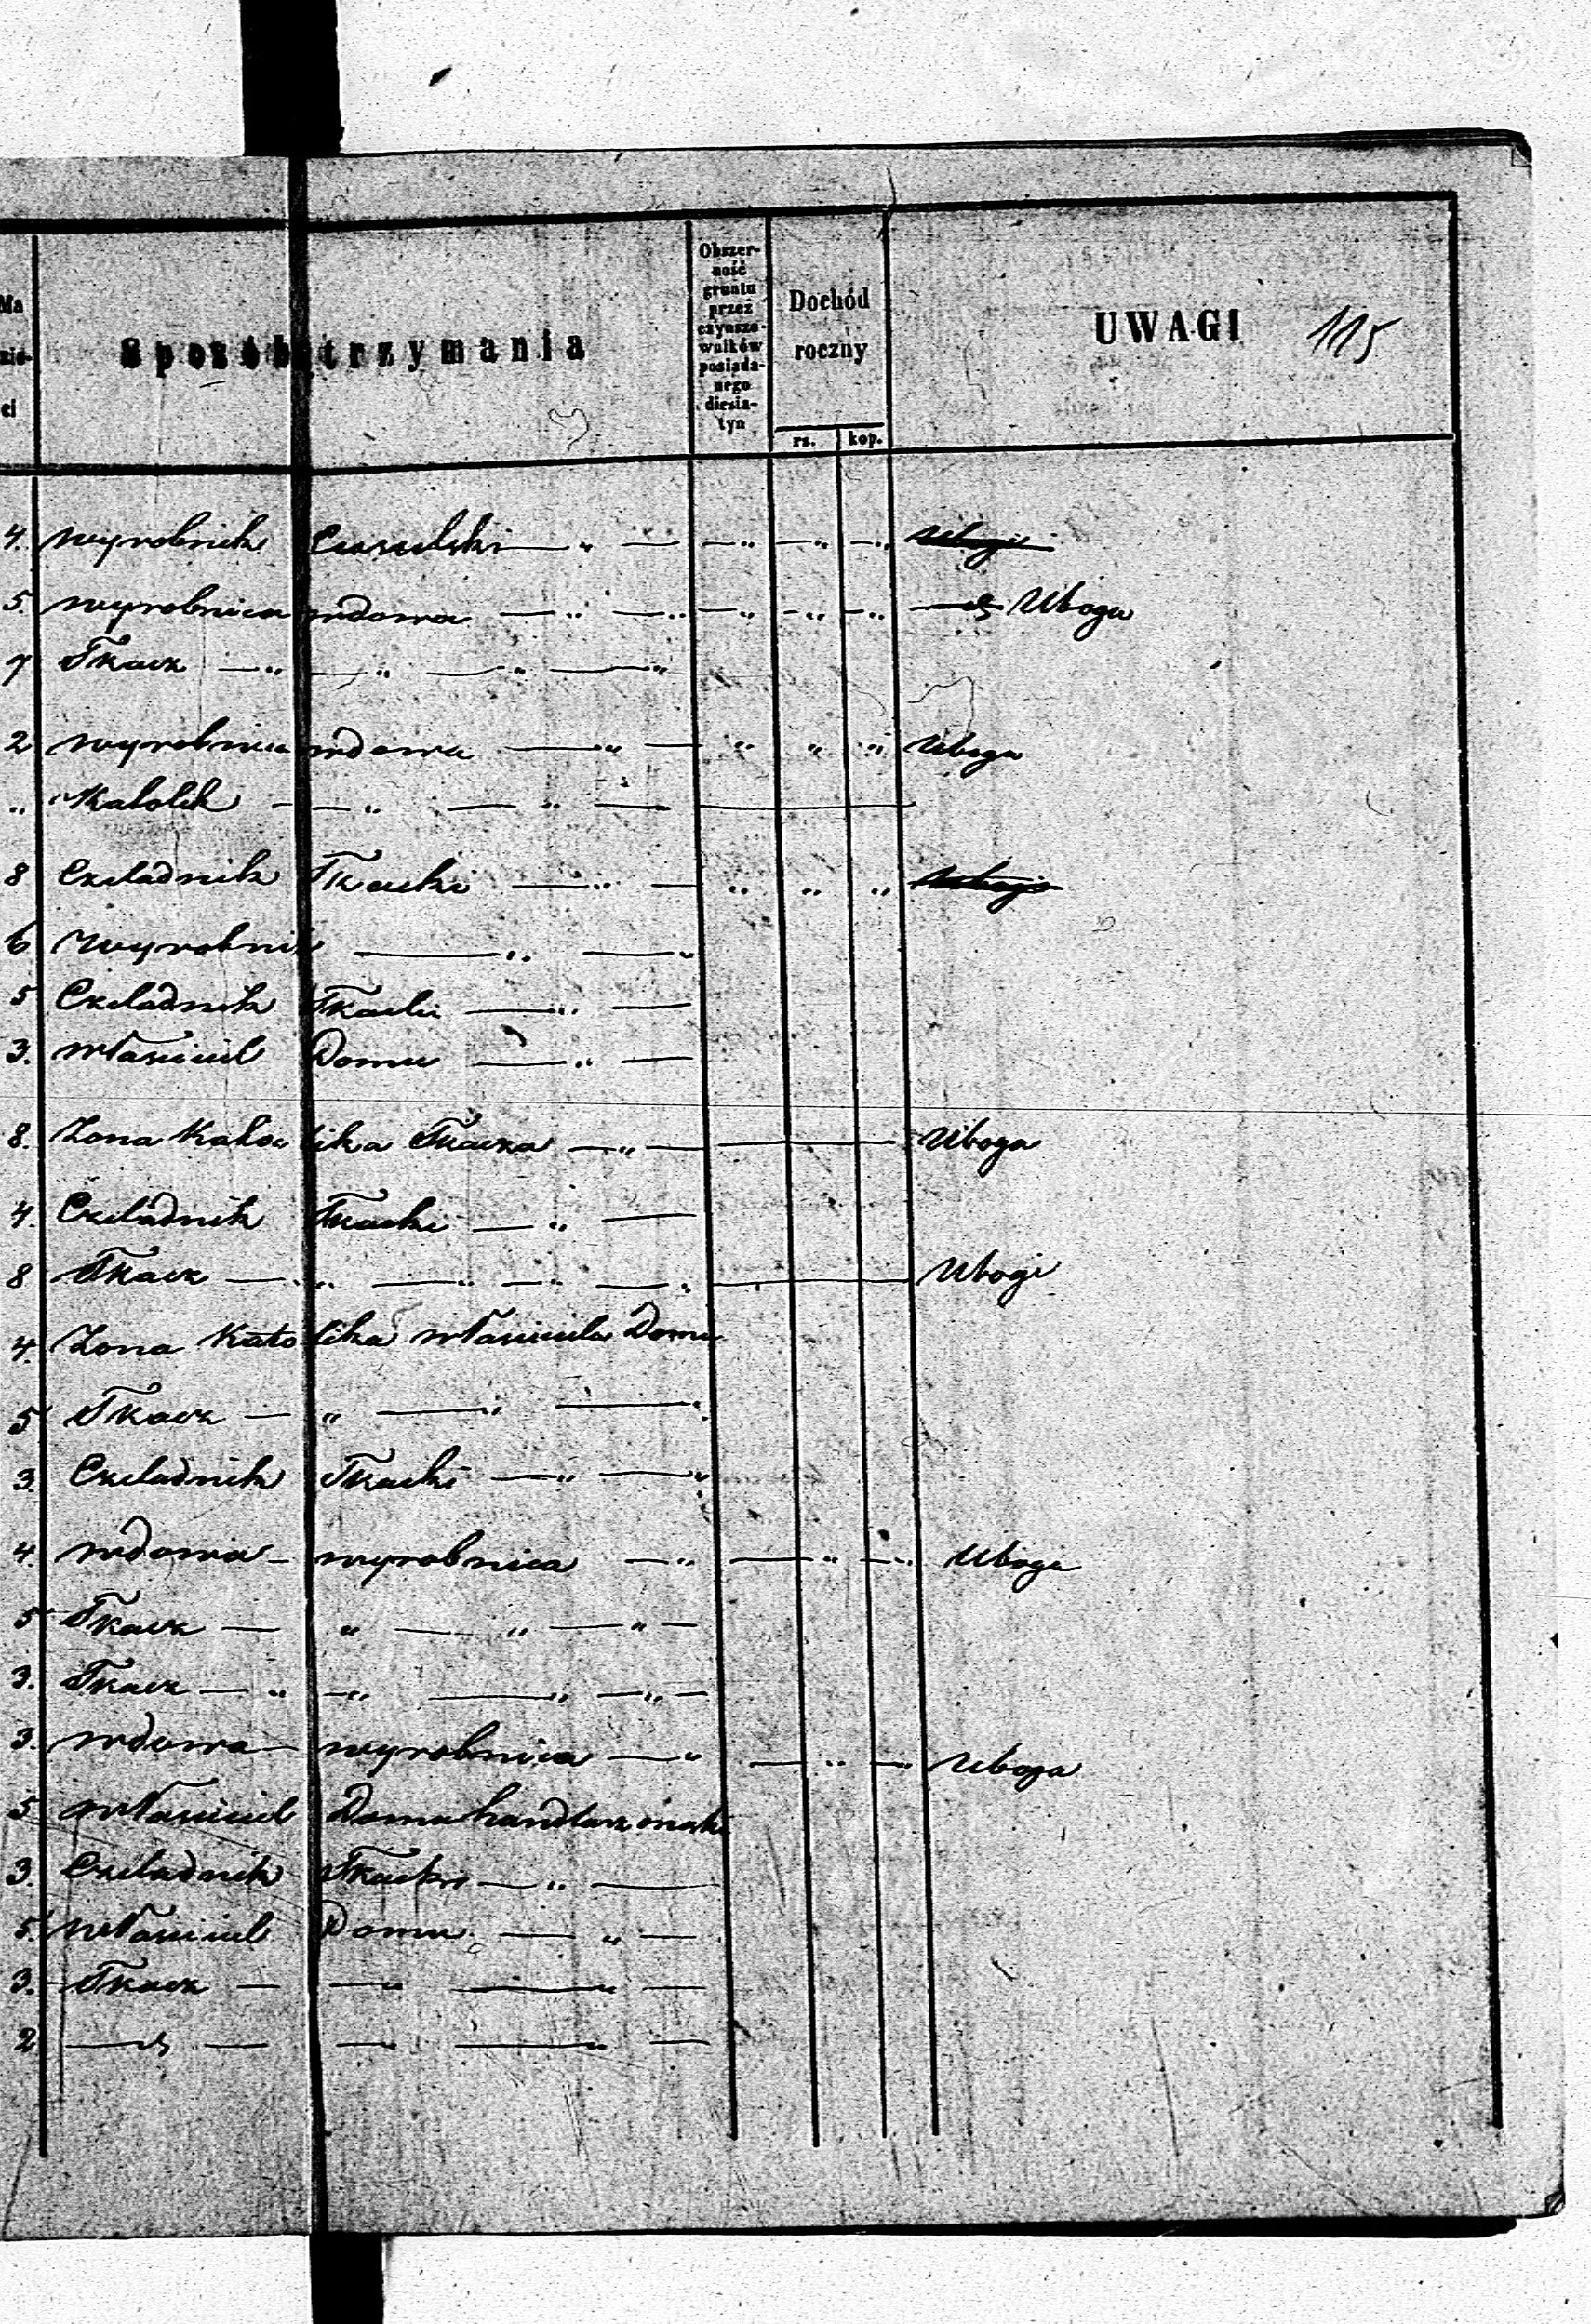 Ma
zie-
ci
Sposób utrzymania
Obszer-
ność
gruntu
przez
czynszo-
wników
posiada-
nego
diesia-
tyn
Dochód
roczny
rs. kop.
UWAGI 115
4. wyrobnik Ciesielski — " — — " — " — " Ubogi
5. wyrobnica wdowa — " — " — " — " — " Uboga
7 Tkacz — " — " — " — "
2 wyrobnica wdowa — " — " " " Uboga
" Katolik — — " — " — —
8 Czeladnik Tkacki — " — " " " Ubogi
6 Wyrobnik — " — "
5 Czeladnik Tkacki — " —
3. właściciel Domu — " —
8. Żona Kato lika Tkacza — " — — Uboga
4. Czeladnik Tkacki — " —
8 Tkacz — " — " — " — " — Ubogi
4. Żona Kato lika właściciela Domu
5 Tkacz — " — " — "
3. Czeladnik Tkacki — " — "
4. wdowa — wyrobnica — " — " — " Uboga
5 Tkacz — " — " — " —
3. Tkacz — " — " — " — " —
3. wdowa — wyrobnica — " — " — " Uboga
5 właściciel Domu handlarz
3. Czeladnik Tkacki — " —
5. właściciel Domu — " —
3. Tkacz — — " — " —
2 — " — — " — " —